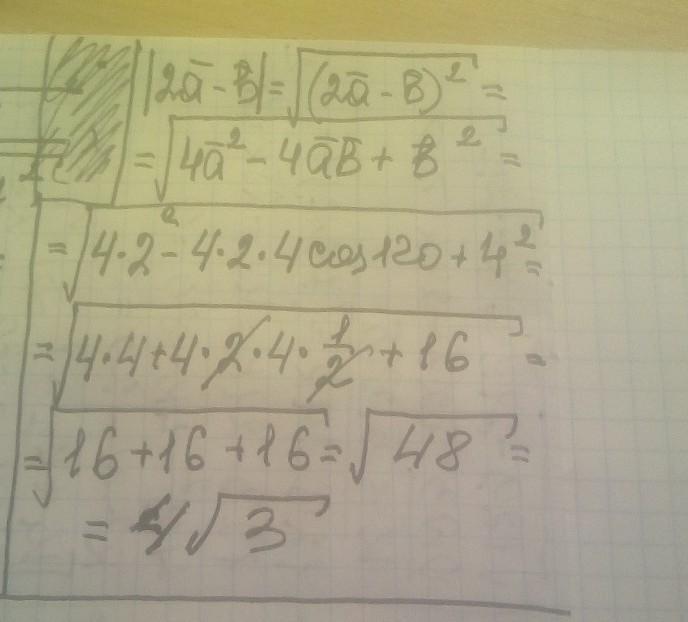 |2a̅ - B̅| = √(2a̅ - B̅)² =
= √4a̅² - 4a̅B̅ + B̅² =
= √4·2² - 4·2·4cos120 + 4² =
= √4·4 + 4·2·4·1/2 + 16 =
= √16 + 16 + 16 = √48 =
= 4√3